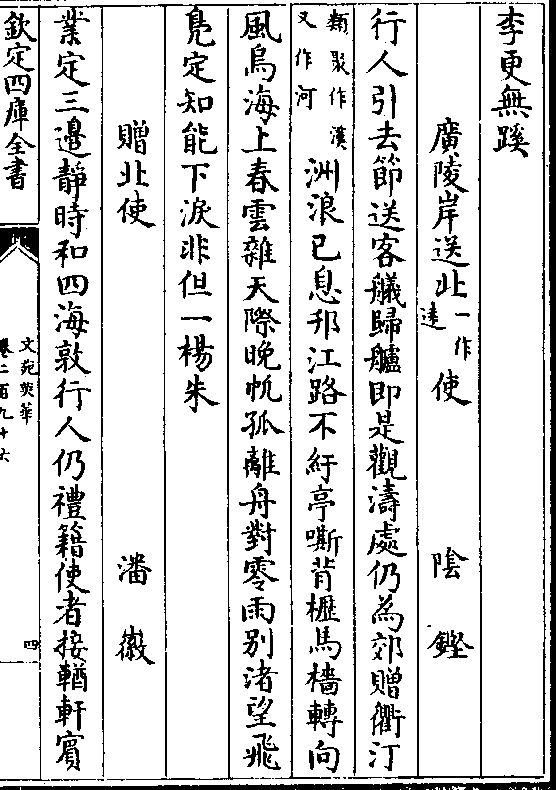 李更無蹊
廣陵岸送北一作達使　陰鏗
行人引去節送客艤歸艫即是觀濤處仍為郊贈衢汀
類聚作漢又作河洲浪已息邗江路不紆亭嘶背櫪馬檣轉向
風烏海上春雲雜天際晚帆孤離舟對零雨別渚望飛
鳧定知能下淚非但一楊朱
贈北使　潘徽
業定三邊靜時和四海敦行人仍禮籍使者接輶軒賓
欽定四庫全書
文苑英華
卷二百九十六
四